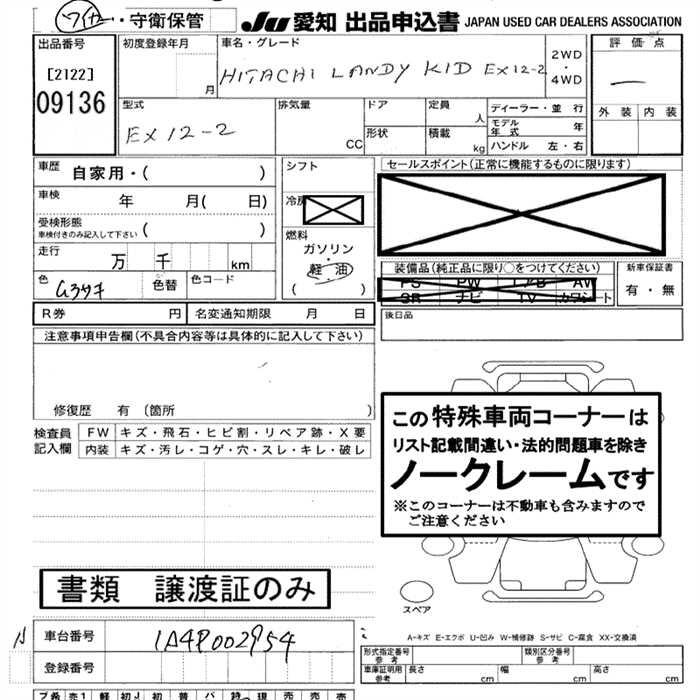 ・守衛保管
JU 愛知 出品申込書 JAPAN USED CAR DEALERS ASSOCIATION
出品番号
[2122]
09136
初度登録年月
月
車名・グレード
HITACHI LANDY KID EX12-2
2WD
・
4WD
評価点
外装 内装
型式
EX12-2
排気量
CC
ドア
形状
定員
人
積載
kg
ディーラー・並 行
モデル年式 年
ハンドル 左・右
車歴
自家用・( )
車検
年 月( 日)
受検形態
車検付きのみ記入して下さい ( )
走行
万 千 km
色
色替
色コード
シフト
冷房
燃料
ガソリン
・
軽油
( )
セールスポイント(正常に機能するものに限ります)
装備品(純正品に限り○をつけてください)
PS PW エアB AW
SR ナビ TV カワシート
新車保証書
有・無
R券 円
名変通知期限 月 日
後日品
注意事項申告欄(不具合内容等は具体的に記入して下さい)
修復歴 有 〔箇所 〕
検査員
記入欄
FW キズ・飛石・ヒビ割・リペア跡・X要
内装 キズ・汚レ・コゲ・穴・スレ・キレ・破レ
この特殊車両コーナーは
リスト記載間違い・法的問題車を除き
ノークレームです
※このコーナーは不動車も含みますので
ご注意ください
書類 譲渡証のみ
スペア
A-キズ E-エクボ U-凹み W-補修跡 S-サビ C-腐食 XX-交換済
車台番号
1A4P002954
登録番号
形式指定番号
参考
類別区分番号
参考
車庫証明用
参考
長さ cm
幅 cm
高さ cm